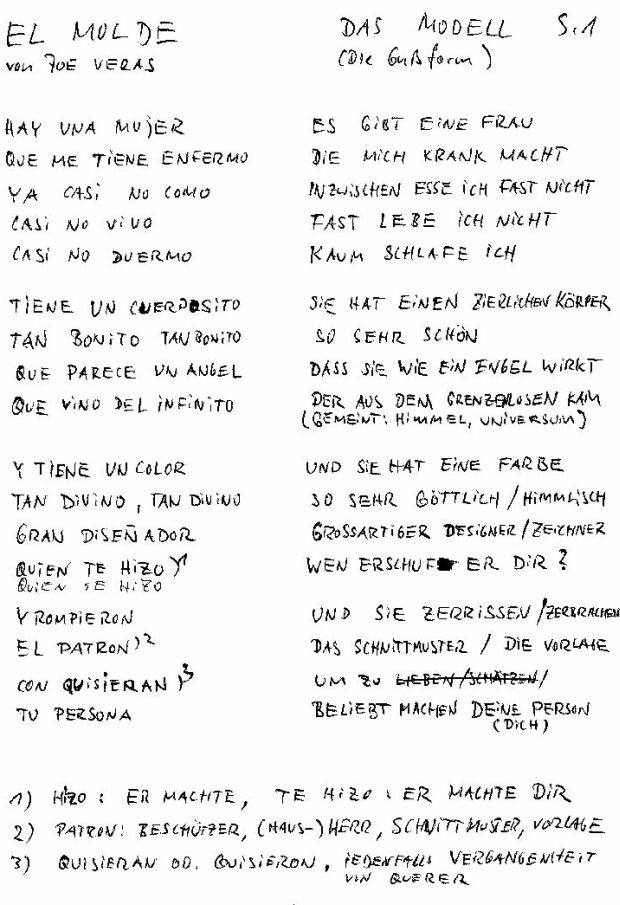 EL MOLDE
von JOE VERAS
DAS MODELL S.1
(Die Gußform)
HAY UNA MUJER
QUE ME TIENE ENFERMO
YA CASI NO COMO
CASI NO VIVO
CASI NO DUERMO
ES GIBT EINE FRAU
DIE MICH KRANK MACHT
INZWISCHEN ESSE ICH FAST NICHT
FAST LEBE ICH NICHT
KAUM SCHLAFE ICH
TIENE UN CUERPOSITO
TAN BONITO TAN BONITO
QUE PARECE UN ANGEL
QUE VINO DEL INFINITO
SIE HAT EINEN ZIERLICHEN KÖRPER
SO SEHR SCHÖN
DASS SIE WIE EIN ENGEL WIRKT
DER AUS DEM GRENZENLOSEN KAM
(GEMEINT: HIMMEL, UNIVERSUM)
Y TIENE UN COLOR
TAN DIVINO, TAN DIVINO
GRAN DISEÑADOR
QUIEN TE HIZO )1
QUIEN SE HIZO
Y ROMPIERON
EL PATRON )2
CON QUISIERAN )3
TU PERSONA
UND SIE HAT EINE FARBE
SO SEHR GÖTTLICH / HIMMLISCH
GROSSARTIGER DESIGNER / ZEICHNER
WEN ERSCHUF ER DIR?
UND SIE ZERRISSEN / ZERBRACHEN
DAS SCHNITTMUSTER / DIE VORLAGE
UM ZU LIEBEN/SCHÄTZEN/
BELIEBT MACHEN DEINE PERSON
(DICH)
1) HIZO: ER MACHTE, TE HIZO: ER MACHTE DIR
2) PATRON: BESCHÜTZER, (HAUS-)HERR, SCHNITTMUSTER, VORLAGE
3) QUISIERAN OD. QUISIERON, JEDENFALLS VERGANGENHEIT
VON QUERER